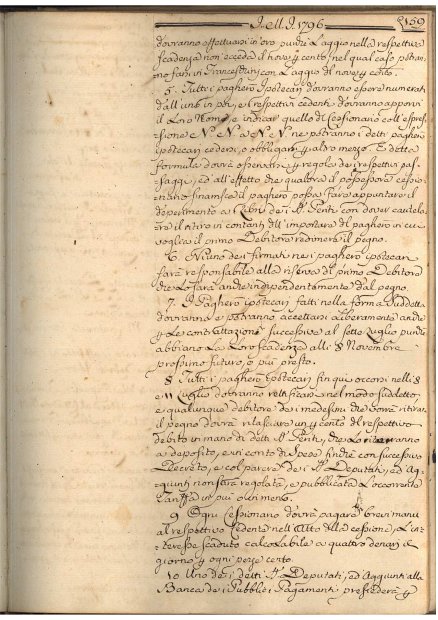 I. M. I. 1796 159
dovranno effettuarsi in oro purche L'aggio nella respettiva
scadenza non ecceda il nove p cento, nel qual caso potran=
no farsi in Francesconi con L'aggio del nove p cento.
5. Tutti i pagherò Ipotecarj dovranno essere numerati
dall'uno in più, e i respettivi cedenti dovranno apporvi
il Loro Nome, e indicar quello del Cessionario coll'espres=
sione N N a N N ne potranno i detti pagherò
ipotecarj cedersi, o obbligarsi p altro mezzo. E detta
formula dovrà osservarsi p regola dei respettivi pas=
saggi, ed all'effetto che qualora il possessore cessio=
nario il pagherò possa fare appuntare il
deperimento ai Libri dei SS.ri con dover cautela=
re il ritiro in contanti dell'importare del pagherò in cui
voglia il primo Debitore redimere il pegno.
6. Niuno dei firmati nei i pagherò ipotecarj
sarà responsabile alla riserva del primo Debitore
che Lo sarà anche independentemente dal pegno.
7. I Pagherò ipotecarj fatti nella forma suddetta
dovranno e potranno accettarsi liberamente anche
p Le contrattazioni successive al sette Luglio purche
abbiano La Loro scadenza alli 8 Novembre
prossimo futuro, o più presto.
8. Tutti i pagherò ipotecarj fin qui occorsi nelli 8
e 11 Luglio dovranno retificarsi nel modo suddetto,
e qualunque debitore dei medesimi che vorrà ritirar
il pegno dovrà rilasciare un p cento del respettivo
debito in mano di detti SS.ri, che Lo riterranno
a deposito, e in conto di Spese finche con successivo
Decreto, e col parere dei SS.ri Deputati, ed Ag=
giunti non sarà regolata, e pubblicata L'occorrente
Tariffa in più o in meno.
9. Ogni cessionario dovrà pagare brevi manu
al respettivo Cedente nell'Atto della cessione, L'in=
teresse scaduto calcolabile a quattro denari il
giorno p ogni pezze cento.
10. Uno dei detti SS.ri Deputati, ed Aggiunti alla
Banca dei Pubblici Pagamenti presiederà p